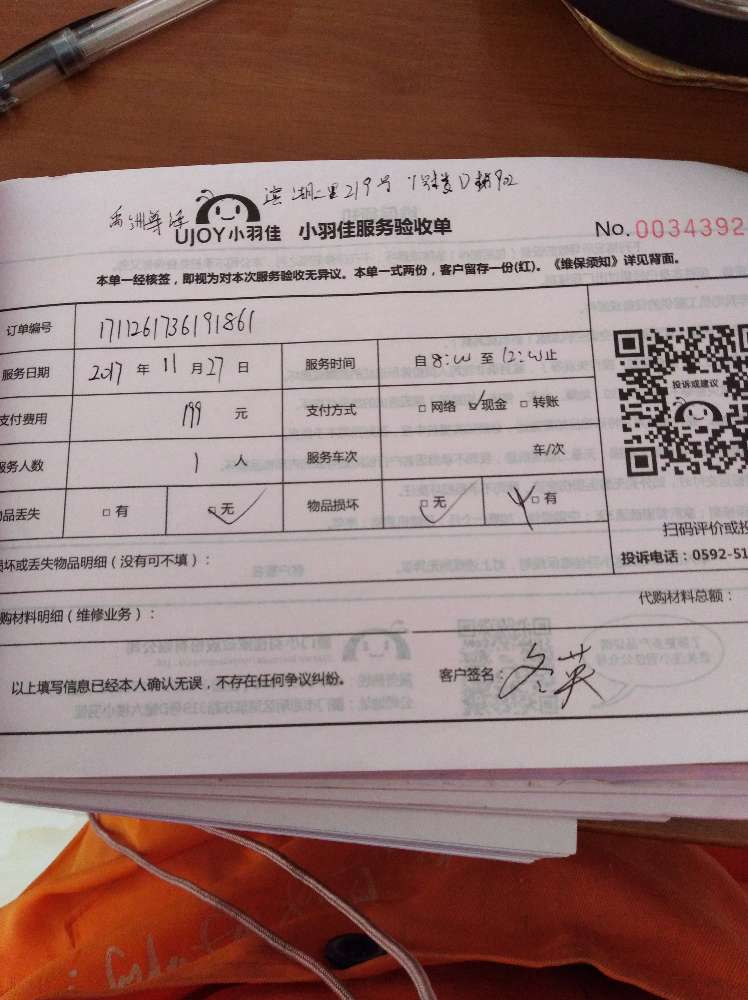 滨湖二里219号 1号楼D梯902
禹洲尊海
UJOY小羽佳 小羽佳服务验收单 No.0034392
本单一经核签，即视为对本次服务验收无异议。本单一式两份，客户留存一份(红)。《维保须知》详见背面。
订单编号 1711261736191861
服务日期 2017 年 11 月 27 日 服务时间 自 8:00 至 12:00 止
支付费用 199 元 支付方式 □网络 ☑现金 □转账
服务人数 1 人 服务车次 车/次
品丢失 □有 ☑无 物品损坏 ☑无 □有
投诉或建议
扫码评价或投
投诉电话：0592-51
损坏或丢失物品明细（没有可不填）：
购材料明细（维修业务）： 代购材料总额：
以上填写信息已经本人确认无误，不存在任何争议纠纷。 客户签名：